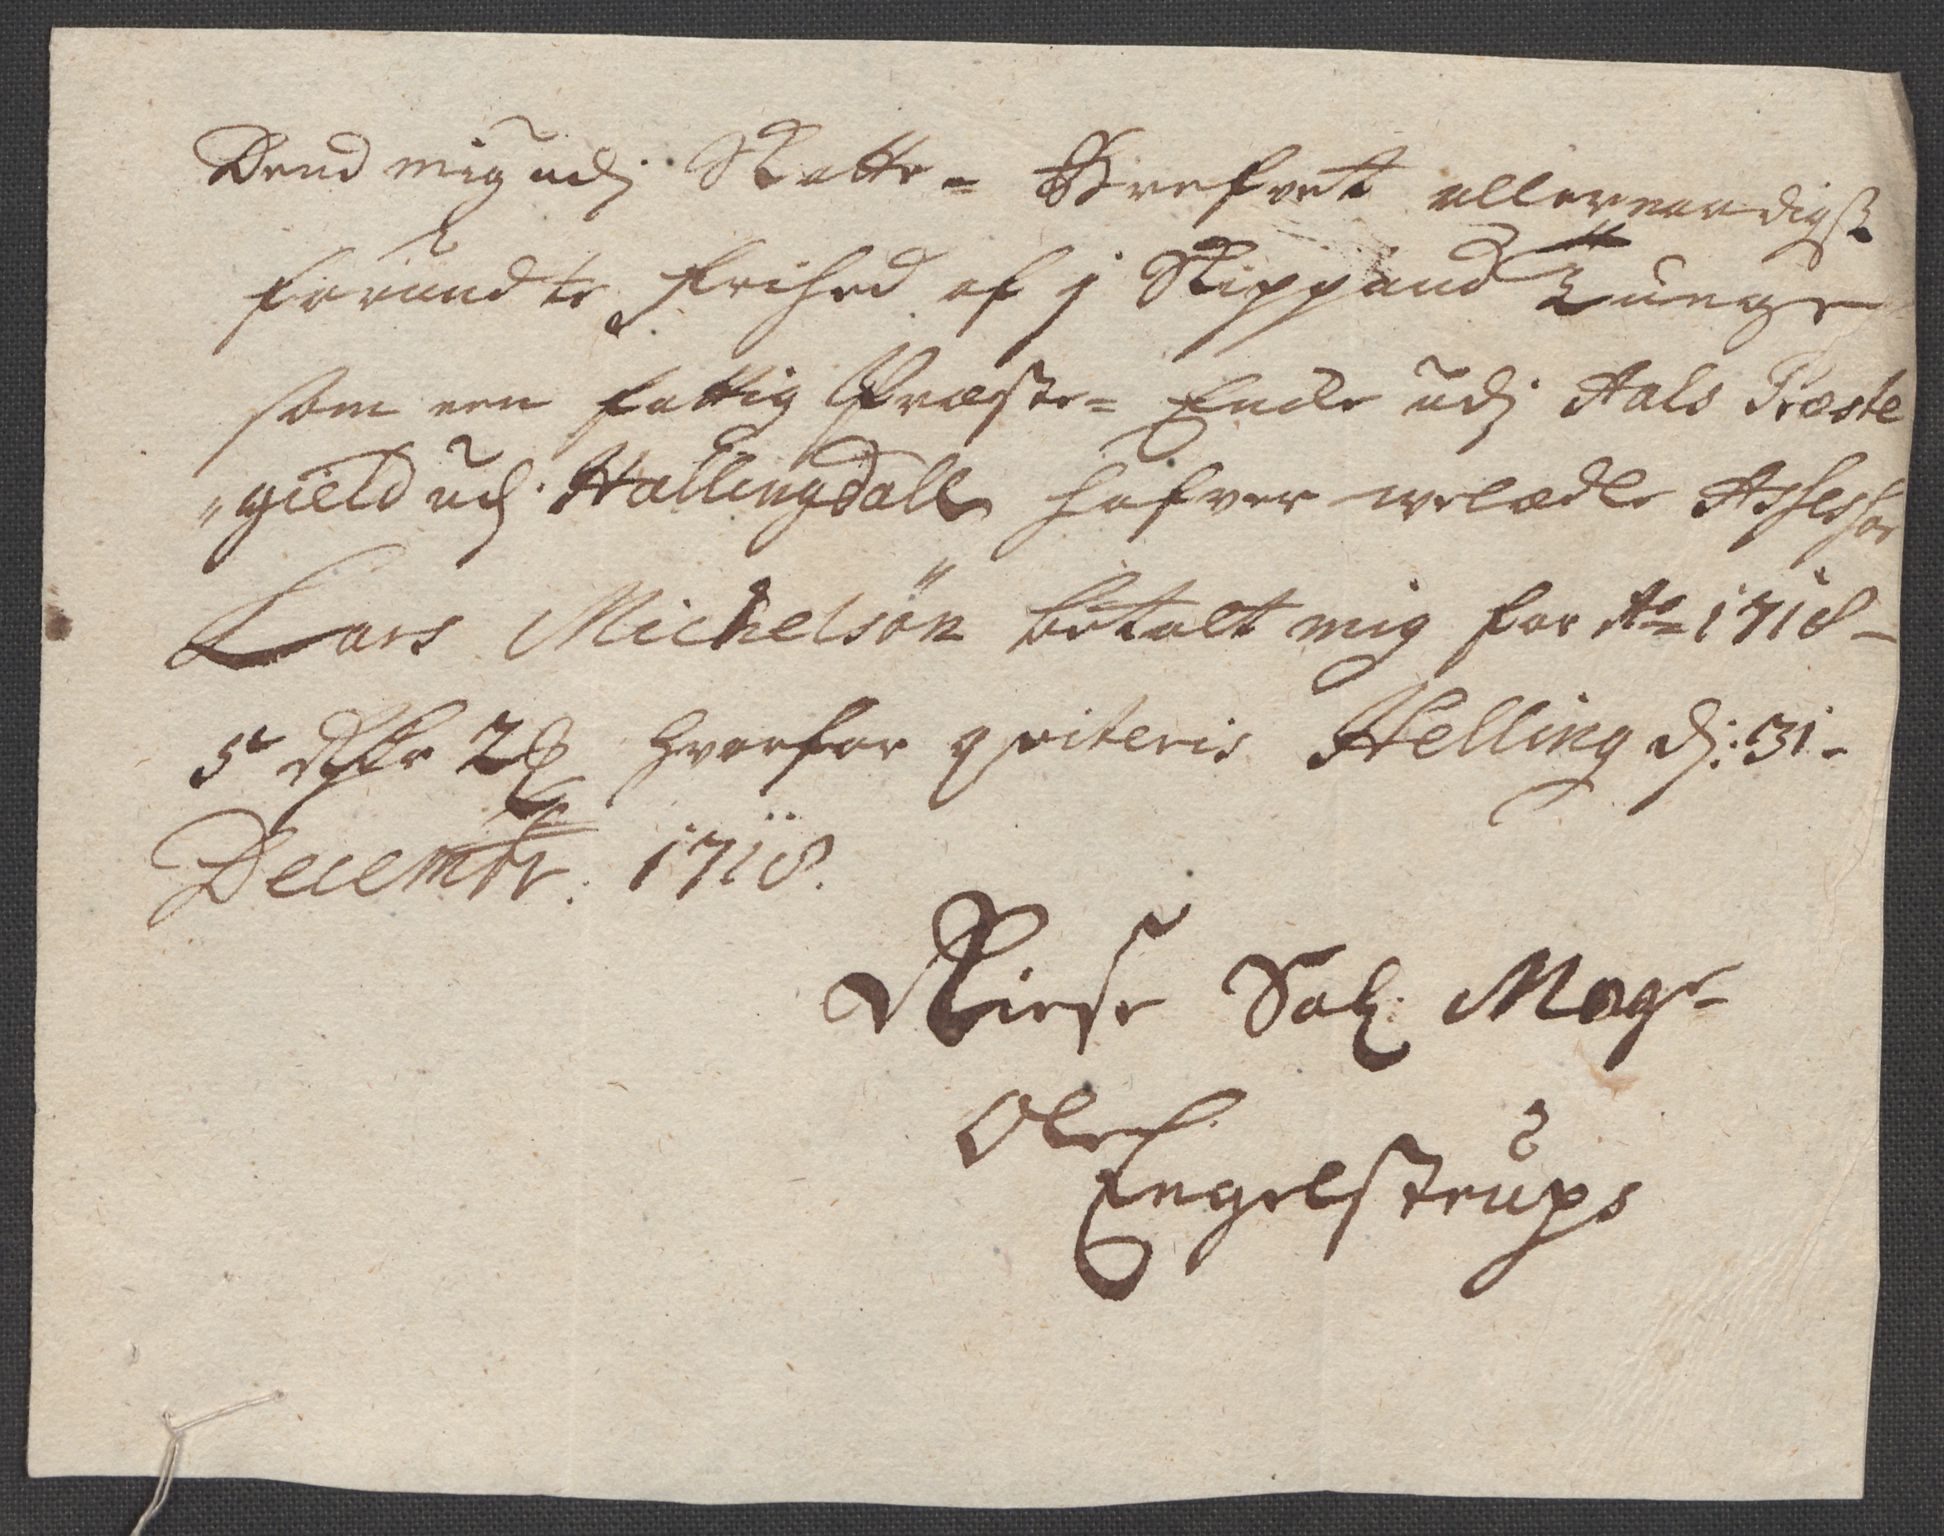 Dend mig udj Skatte= Brefvet allernaadigst
forundte frihed af j Skippund Tunge
som een fattig Præste= Encke udj Aals Præste
"gield udj Hallingdall hafver welædle Assessor
Lars Michelsön betalt mig for Ao 1718
5 Rdr 2 hvorfor qviteris Helling dj: 31
Decembr. 1718.
Sal: Mag:
Ole
Engelstrups